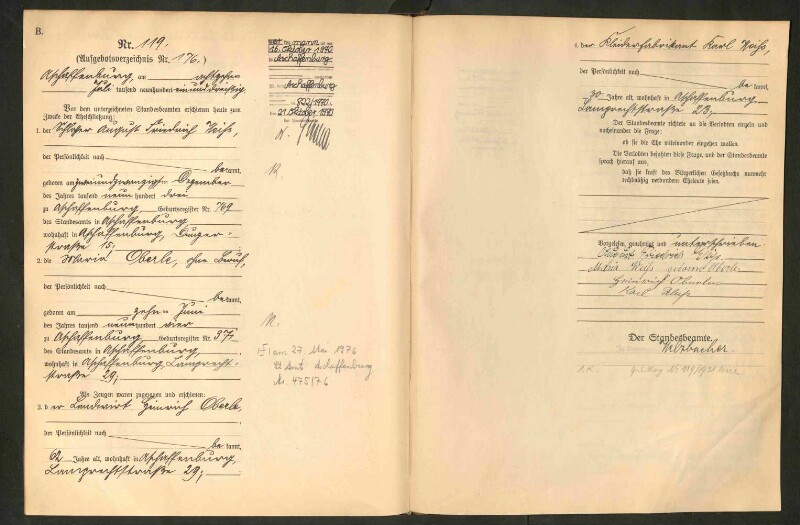 B.
Nr. 119.
(Aufgebotsverzeichnis Nr. 176.)
Aschaffenburg, am achtzehn
Juli tausend neunhundert einunddreißig
Vor dem unterzeichneten Standesbeamten erschienen heute zum
Zwecke der Eheschließung:
1. der Schlosser August Friedrich Weiß,
der Persönlichkeit nach
be kannt,
geboren am zweiundzwanzigsten Dezember
des Jahres tausend neunhundert drei
zu Aschaffenburg, Geburtsregister Nr. 769
des Standesamts in Aschaffenburg
wohnhaft in Aschaffenburg,
straße 15;
2. die Maria Oberle, ohne Beruf,
der Persönlichkeit nach
be kannt,
geboren am zehn Juni
des Jahres tausend neunhundert vier
zu Aschaffenburg, Geburtsregister Nr. 377
des Standesamts in Aschaffenburg,
wohnhaft in Aschaffenburg, Lamprecht-
straße 29;
Als Zeugen waren zugezogen und erschienen:
3. der Landwirt Heinrich Oberle,
der Persönlichkeit nach
be kannt,
62 Jahre alt, wohnhaft in Aschaffenburg,
Lamprechtstraße 29;
mann
Oktober
Aschaffenburg
Aschaffenburg
Oktober
am 27. Mai 1976
St Amt Aschaffenburg
Nr. 475/76
4. der Kleiderfabrikant Karl Weiß,
der Persönlichkeit nach
be kannt,
30 Jahre alt, wohnhaft in Aschaffenburg,
Lamprechtstraße 23;
Der Standesbeamte richtete an die Verlobten einzeln und
nacheinander die Frage:
ob sie die Ehe miteinander eingehen wollen.
Die Verlobten bejahten diese Frage, und der Standesbeamte
sprach hierauf aus,
daß sie kraft des Bürgerlichen Gesetzbuchs nunmehr
rechtmäßig verbundene Eheleute seien.
Vorgelesen, genehmigt und unterschrieben
August Friedrich Weiß.
Maria Weiß geborene Oberle
Heinrich Oberle
Karl Weiß
Der Standesbeamte.